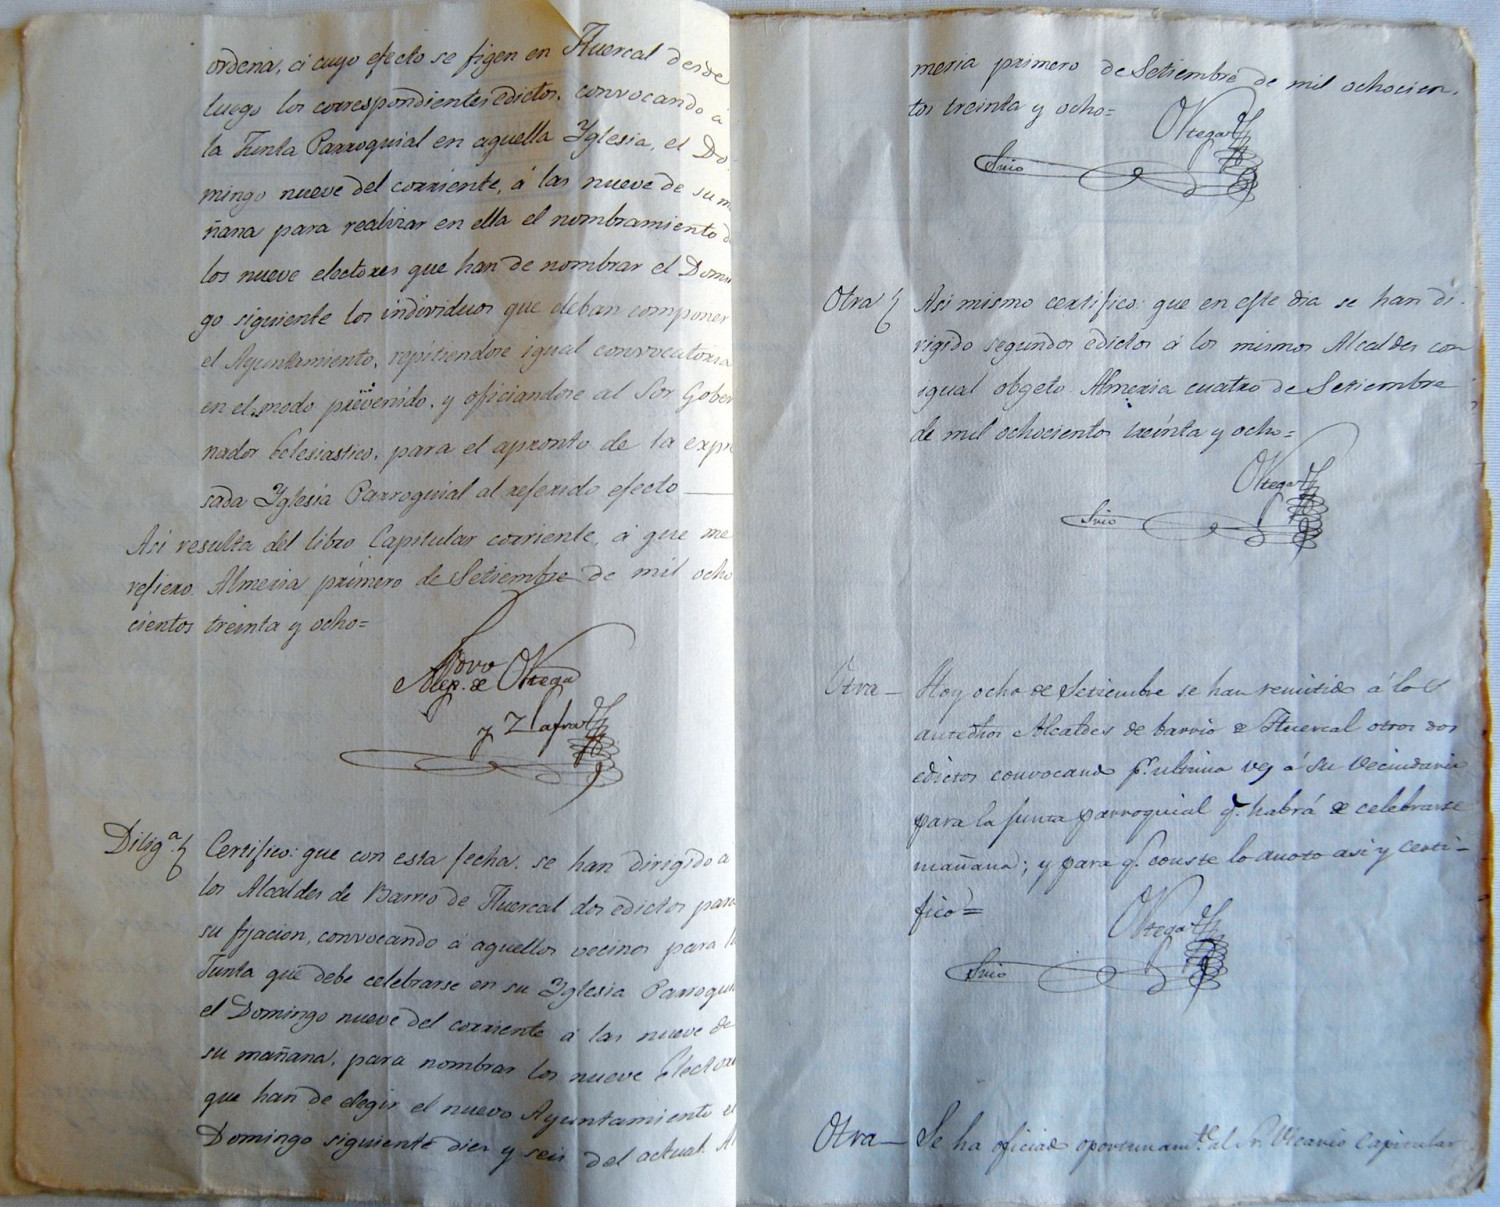 ordena, á cuyo efecto se figen en Huercal desde
luego los correspondientes edictos, convocando á
la Junta Parroquial en aquella Yglesia, el Do-
mingo nueve del corriente, á las nueve de su ma
ñana para realizar en ella el nombramiento d
los nueve electores que han de nombrar el Domi
go siguiente los individuos que deban componer
el Ayuntamiento, repitiendose igual convocatoria
en el modo prevenido, y oficiandose al Sor Gober
nador Eclesiastico, para el apronto de la expr
sada Yglesia Parroquial al referido efecto
Asi resulta del libro Capitular corriente, á que me
refiero. Almeria primero de Setiembre de mil ocho
cientos treinta y ocho=
de Ortega
y Zlafra
Dilig.ª Certifico: que con esta fecha, se han dirigido a
los Alcaldes de Barrio de Huercal dos edictos para
su fijacion, convocando á aquellos vecinos para l
Junta que debe celebrarse en su Yglesia Parroqui
el Domingo nueve del corriente á las nueve de
su mañana, para nombrar los nueve Electore
que han de elegir el nuevo Ayuntamiento el
Domingo siguiente diez y seis del actual. Al
meria primero de Setiembre de mil ochocien-
tos treinta y ocho=
Ortega
Srio
Otra Asi mismo certifico: que en este dia se han di-
rigido segundos edictos á los mismos Alcaldes con
igual obgeto. Almeria cuatro de Setiembre
de mil ochocientos treinta y ocho=
Ortega
Srio
Otra— Hoy ocho de Setiembre se han remitido á los
antedhos Alcaldes de barrio de Huercal otros dos
edictos convocando p.r ultima vez á su vecindario
para la junta parroquial q.e habrá de celebrarse
mañana; y para q.e conste lo anoto asi y certi-
fico=
Ortega
Srio
Otra— Se ha oficiado oportunam.te al Sr. Vicario Capitular